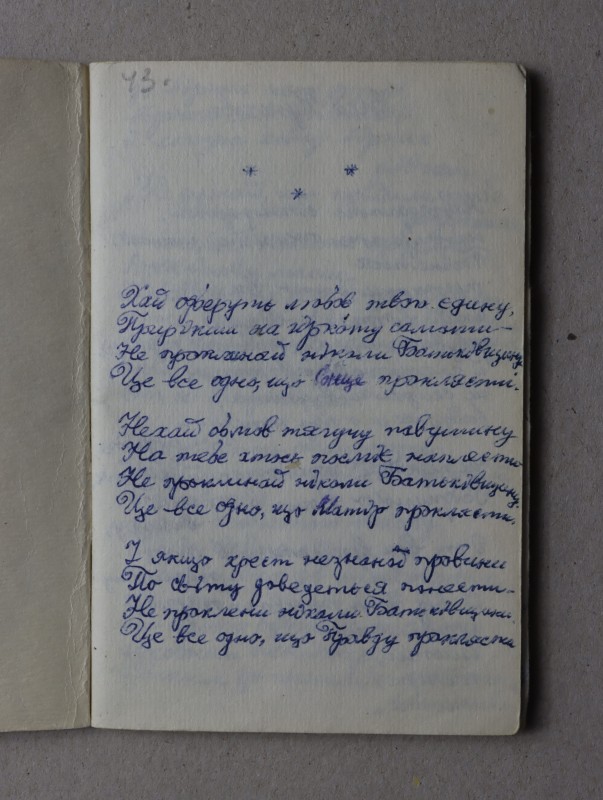 43.
* *
*
Хай оберуть любов твою єдину,
на гіркоту самоти—
Не проклинай ніколи Батьківщину
Це все одно, що проклясти.
Нехай обмов тягучу павутину
На тебе хтось посміє наплести
Не проклинай ніколи Батьківщину.
Це все одно, що Матір проклясти.
І якщо хрест незнаної провини
По світу доведеться понести—
Не проклени ніколи Батьківщини.
Це все одно, що Правду проклясти